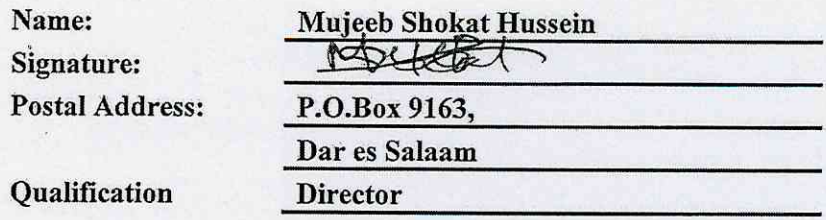 Name: Mujeeb Shokat Hussein
Signature:
Postal Address: P.O.Box 9163,
Dar es Salaam
Qualification Director